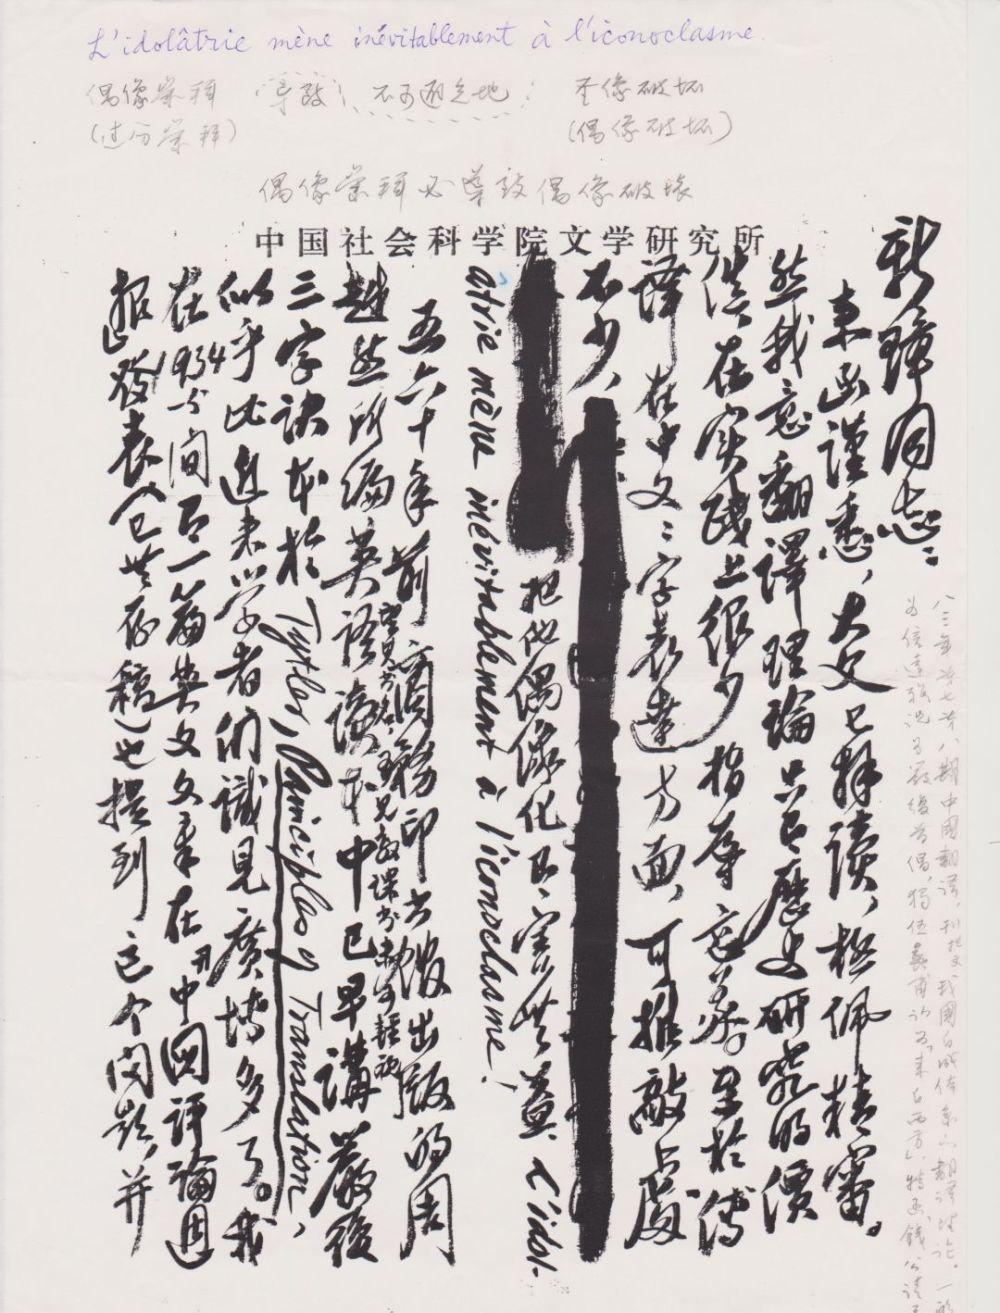 L'idolâtrie mène inévitablement à l'iconoclasme.
偶像崇拜 (导致) 不可避免地: 圣像破坏
(过分崇拜) (偶像破坏)
偶像崇拜必导致偶像破坏
中国社会科学院文学研究所
新璋同志:
来函谨悉,大文已拜读,极佩精审。
然我意翻译理论只有历史研究的价
值,在实践上很少指导意义。至於傅
译在中文文字表达方面,可推敲之处
不少,
把他偶像化有害无益,L'idol-
âtrie mène inévitablement à l'iconoclasme!
五六十年前商务印书馆出版的周
越然所编英语读本中已早讲严复
三字诀本於 Tytler, Principles of Translation,
似乎比近来学者们识见广博多了。我
在1934年间有一篇英文文章在《中国评论週
报》发表(已无存稿)也提到这个问题,并
八三年第七第八期中国翻译,刊拙文我国自成体系的翻译理论。一般